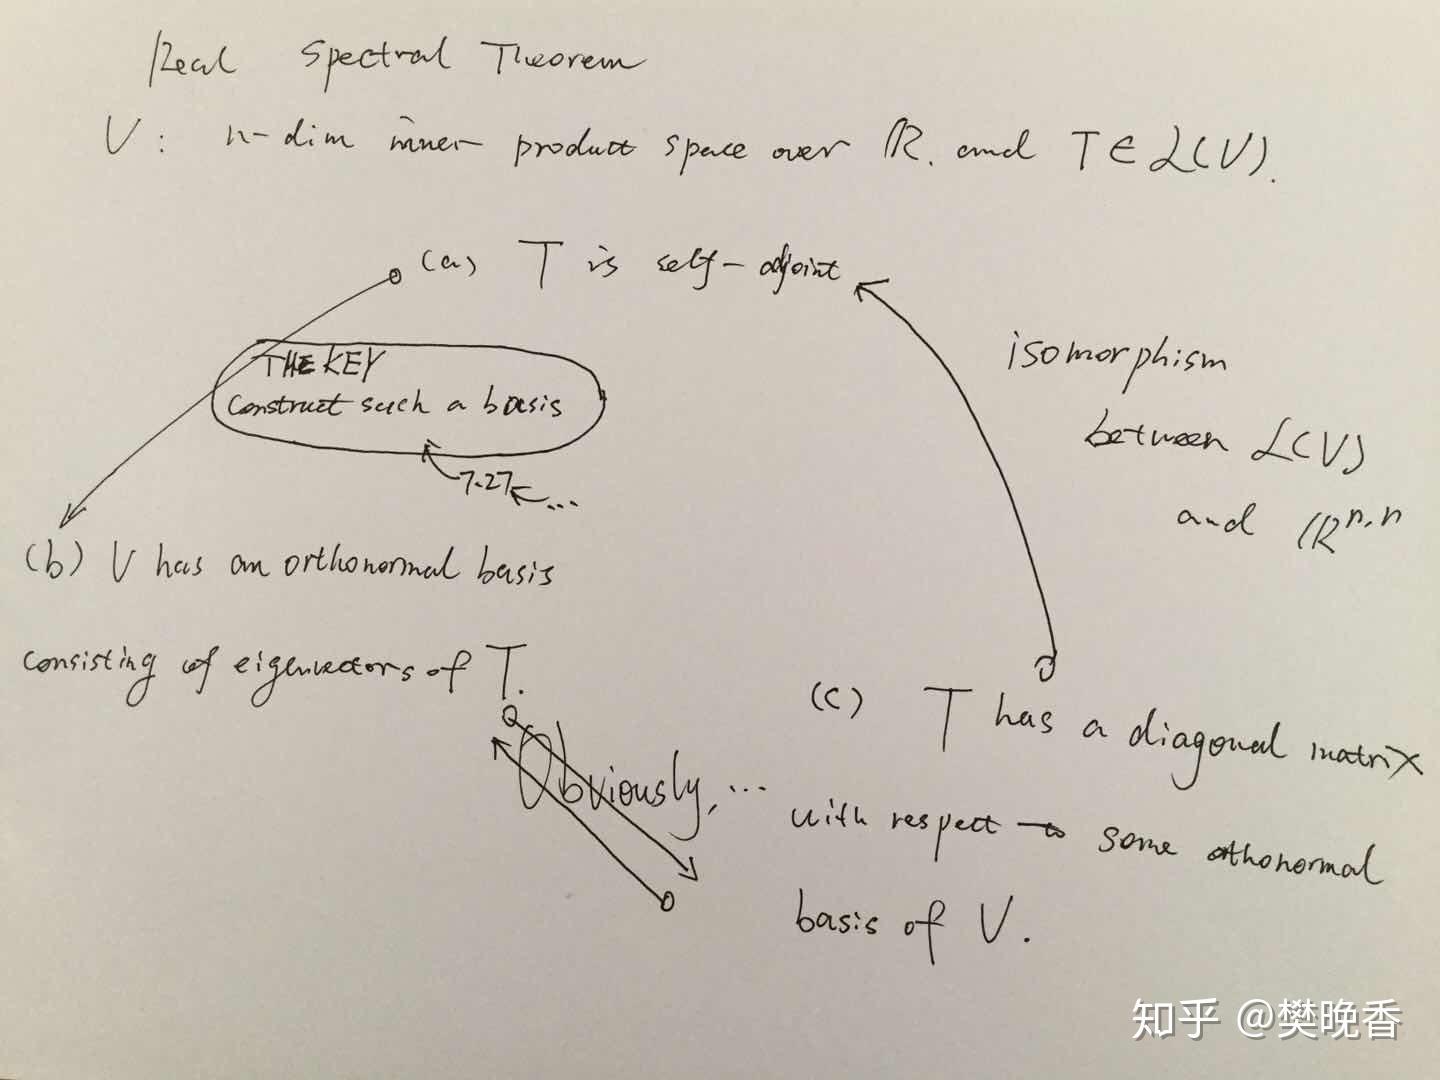 Real Spectral Theorem
V: n-dim inner product space over ℝ. and T∈ℒ(V).
(a) T is self-adjoint
THE KEY
Construct such a basis
7.27 ...
isomorphism
between ℒ(V)
and ℝⁿ'ⁿ
(b) V has an orthonormal basis
consisting of eigenvectors of T.
Obviously, ...
(c) T has a diagonal matrix
with respect to some orthonormal
basis of V.
知乎 @樊晚香